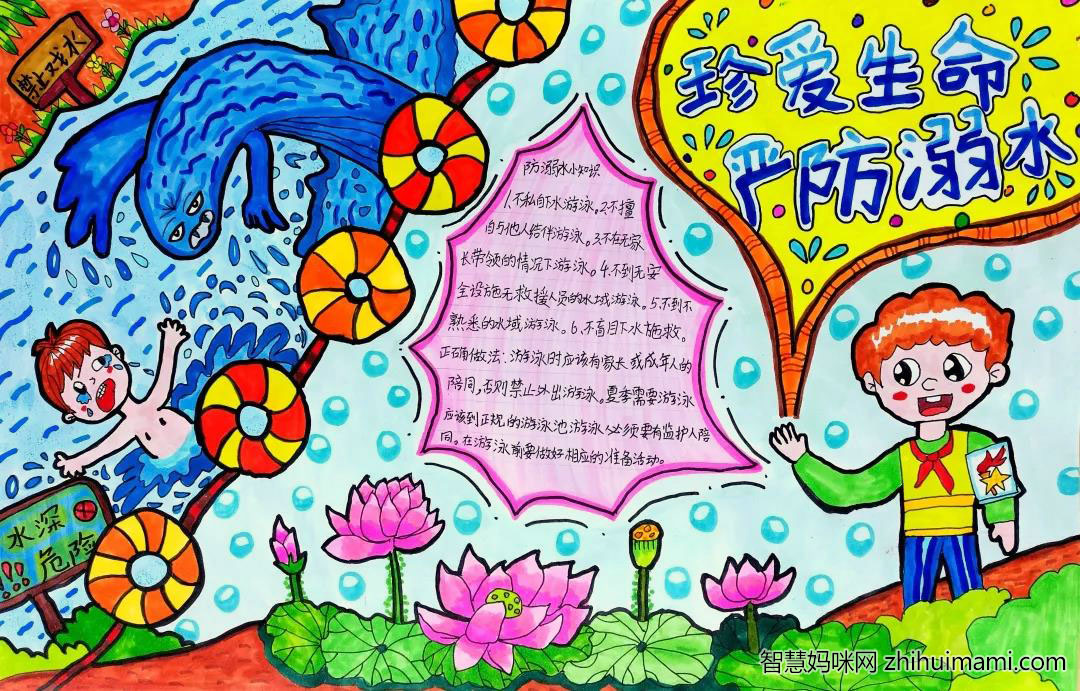 禁止戏水
珍爱生命
严防溺水
防溺水小知识
1.不私自下水游泳。2.不擅
自与他人结伴游泳。3.不在无家
长带领的情况下游泳。4.不到无安
全设施无救援人员的水域游泳。5.不到不
熟悉的水域游泳。6.不盲目下水施救。
正确做法:游泳时应该有家长或成年人的
陪同,否则禁止外出游泳。夏季需要游泳
应该到正规的游泳池游泳必须要有监护人陪
同。在游泳前要做好相应的准备活动。
水深
危险
!!!
智慧妈咪网 zhihuimami.com